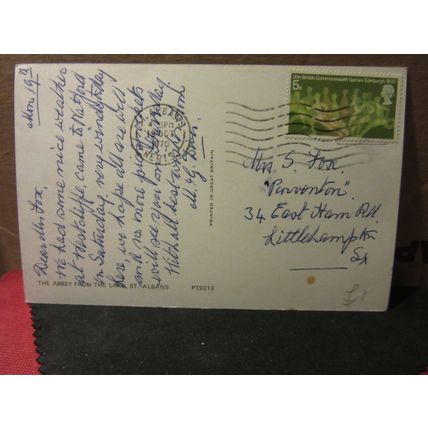 Mon. 19th
Dear Mrs. Fox,
We had some nice weather
at came to Watford
on Saturday, very windy today
here, we hope all are well
and no more
will see you on Saturday.
With all best love to you both
M. & G.
ST. ALBANS
HERTS
10th British Commonwealth Games Edinburgh 1970
5p
Mrs S. Fox.
"Perventon"
34 East Ham Rd.
Littlehampton
Sx
PRINTED IN GREAT BRITAIN
THE ABBEY FROM THE LAKE, ST. ALBANS PT9213
£1